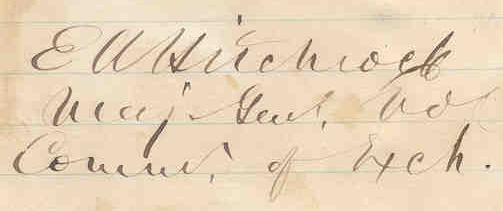 E A Hitchcock
Maj. Genl. Vol
Commr. of Exch.